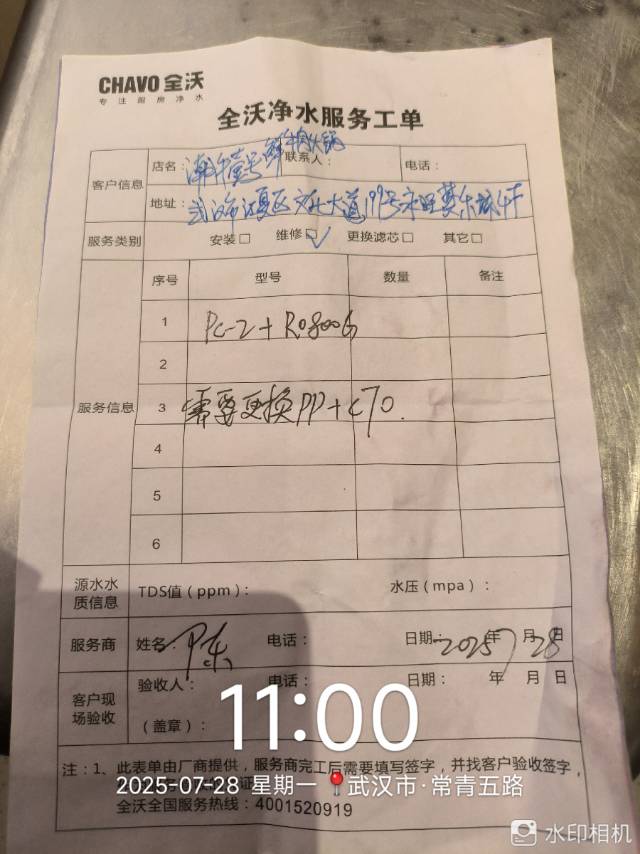 CHAVO 全沃
专注厨房净水
全沃净水服务工单
客户信息 店名：潮牛壹号鲜牛肉火锅 联系人： 电话：
地址：武汉市江夏区文化大道199号永旺梦乐城4F
服务类别 安装□ 维修□✓ 更换滤芯□ 其它□
服务信息 序号 型号 数量 备注
1 PC-2+RO800G
2
3 需要更换PP+CTO.
4
5
6
源水水质信息 TDS值（ppm）： 水压（mpa）：
服务商 姓名： 电话： 日期：2025年7月28日
客户现场验收 验收人： 电话： 日期： 年 月 日
（盖章）：
11:00
注：1、此表单由厂商提供，服务商完工后需要填写签字，并找客户验收签字，
2025-07-28 星期一 武汉市·常青五路
全沃全国服务热线：4001520919
水印相机